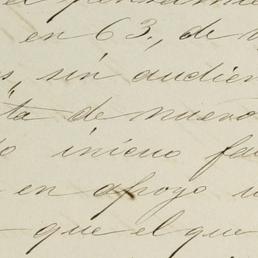 en 63, de
s, sin audien
ta de nuevo
o inicuo fa
en apoyo
que el que